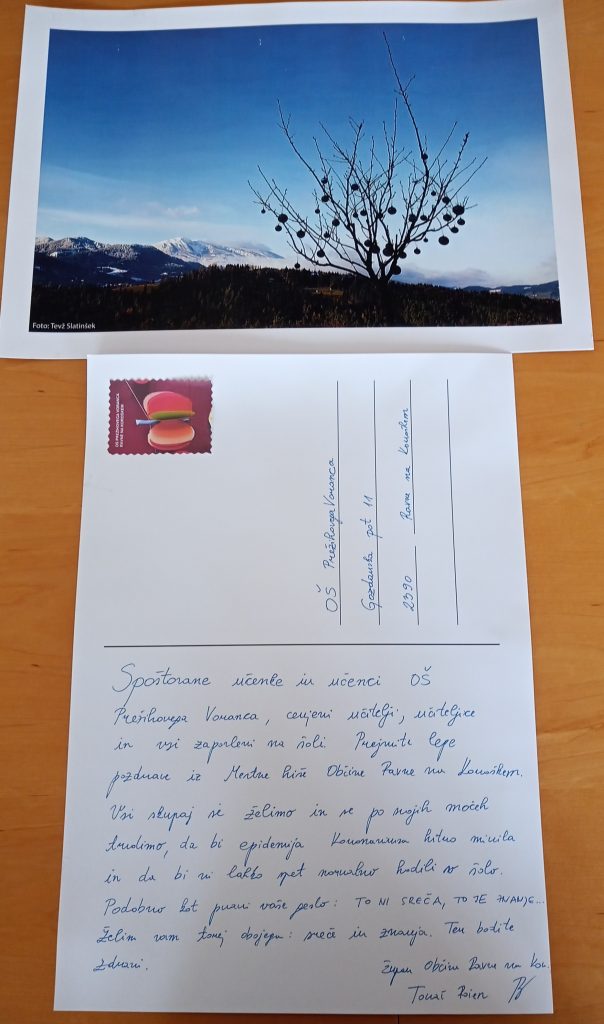 Foto: Tevž Slatinšek
OŠ PREŽIHOVEGA VORANCA
RAVNE NA KOROŠKEM
OŠ Prežihovega Voranca
Gozdarska pot 11
2390 Ravne na Koroškem
Spoštovane učenke in učenci OŠ
Prežihovega Voranca, cenjeni učitelji, učiteljice
in vsi zaposleni na šoli. Prejmite lepe
pozdrave iz Mestne hiše Občine Ravne na Koroškem.
Vsi skupaj si želimo in se po svojih močeh
trudimo, da bi epidemija Koronavirusa hitro minila
in da bi vi lahko spet normalno hodili v šolo.
Podobno kot pravi vaše geslo: TO NI SREČA, TO JE ZNANJE...
želim vam torej obojega: sreče in znanja. Ter bodite
zdravi.
Župan Občine Ravne na Kor.
Tomaž Rožen